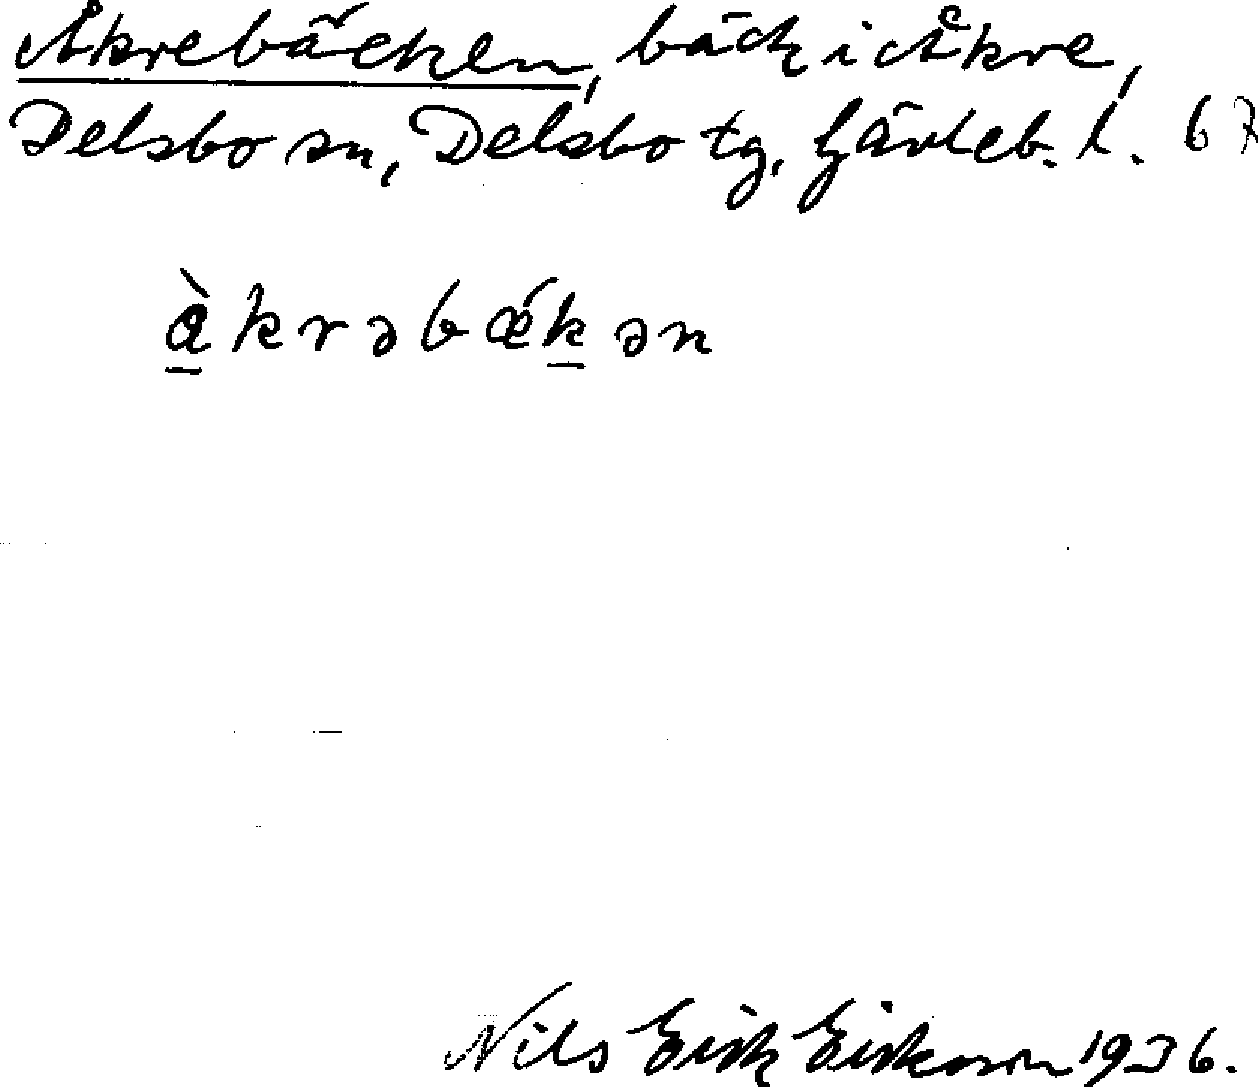 Åkrebäcken, bäck i Åkre,
Delsbo sn, Delsbo tg, Gävleb. l.
àkrəbǽkən
Nils Erik Erikson 1936.